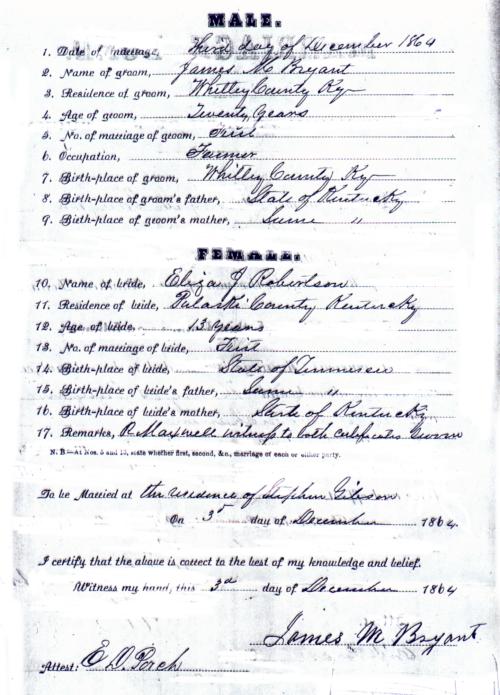 MALE.
1. Date of marriage, Third day of December 1864
2. Name of groom, James M Bryant
3. Residence of groom, Whitley County Ky
4. Age of groom, Twenty Years
5. No. of marriage of groom, First
6. Occupation, Farmer
7. Birth-place of groom, Whitley County Ky
8. Birth-place of groom's father, State of Kentucky
9. Birth-place of groom's mother, Same "
FEMALE.
10. Name of bride, Eliza J Robertson
11. Residence of bride, Pulaski County Kentucky
12. Age of bride, 13 years
13. No. of marriage of bride, First
14. Birth-place of bride, State of Tennessee
15. Birth-place of bride's father, Same "
16. Birth-place of bride's mother, State of Kentucky
17. Remarks, R Maxwell witness to both certificates Sworn
N. B.—At Nos. 5 and 13, state whether first, second, &c., marriage of each or either party.
To be Married at the residence of Stephen Gibson
On 3d day of December 1864.
I certify that the above is correct to the best of my knowledge and belief.
Witness my hand, this 3d day of December 1864
James M. Bryant
Attest: E. D. Porch